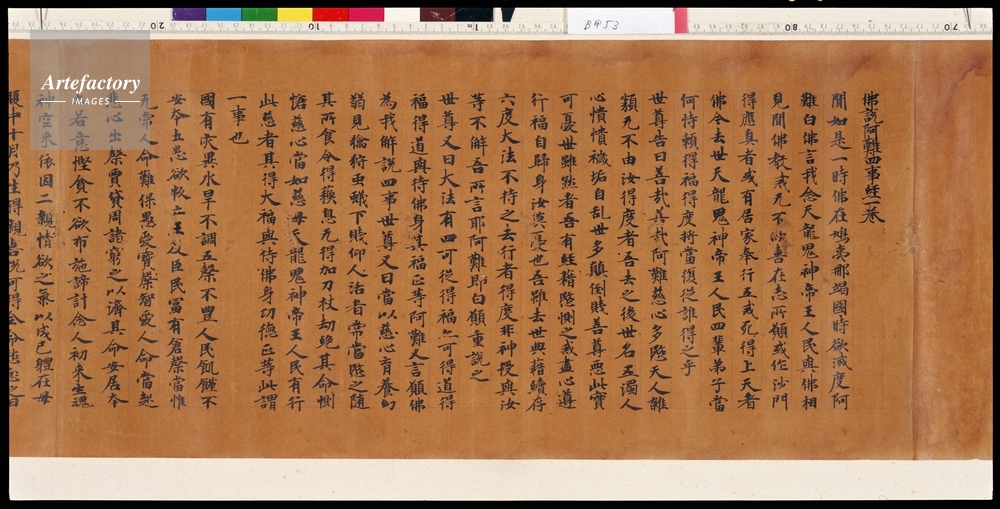 佛說阿難四事經一卷
聞如是一時佛在鳩夷那竭國時欲滅度阿
難白佛言我念天龍鬼神帝王人民與佛相
見聞佛教戒无不歡喜在志所願或作沙門
得應真者或有居家奉行五戒死得上天者
佛今去世天龍鬼神帝王人民四輩弟子當
何恃賴得福得度將當復從誰得之乎
世尊告曰善哉善哉阿難慈心多愍天人雜
類无不由汝得度者吾去之後世名五濁人
心憒憒穢垢自乱世多顛倒賤善尊惡此實
可憂世雖然者吾有經籍愍惻之戒盡心遵
行福自歸身汝莫憂也吾雖去世典籍續存
六度大法不持之去行者得度非神授與汝
等不解吾所言耶阿難即白願重說之
世尊又曰大法有四可從得福亦可得道得
福得道與待佛身其福正等阿難又言願佛
為我解說四事世尊又曰當以慈心育養幼
弱見禽狩虫蛾下賤仰人活者常當愍之隨
其所食令得蘓息无得加刀杖劫絕其命惻
愴慈心當如慈母天龍鬼神帝王人民有行
此慈者其得大福與待佛身功德正等此謂
一事也
國有灾異水旱不調五槃不豐人民飢饉不
安本土思欲叛亡王及臣民冨有倉槃當惟
无常人命難保愚愛寶槃智愛人命當起
悲心出槃賈貸周諸窮乏以濟其命安居本
若意慳貪不欲布施諦計念人初來生魂
神空來依因二親情欲之氣以成己體在母
腹中十月乃生得親
B甲53
20
10
80
70
Artefactory
IMAGES